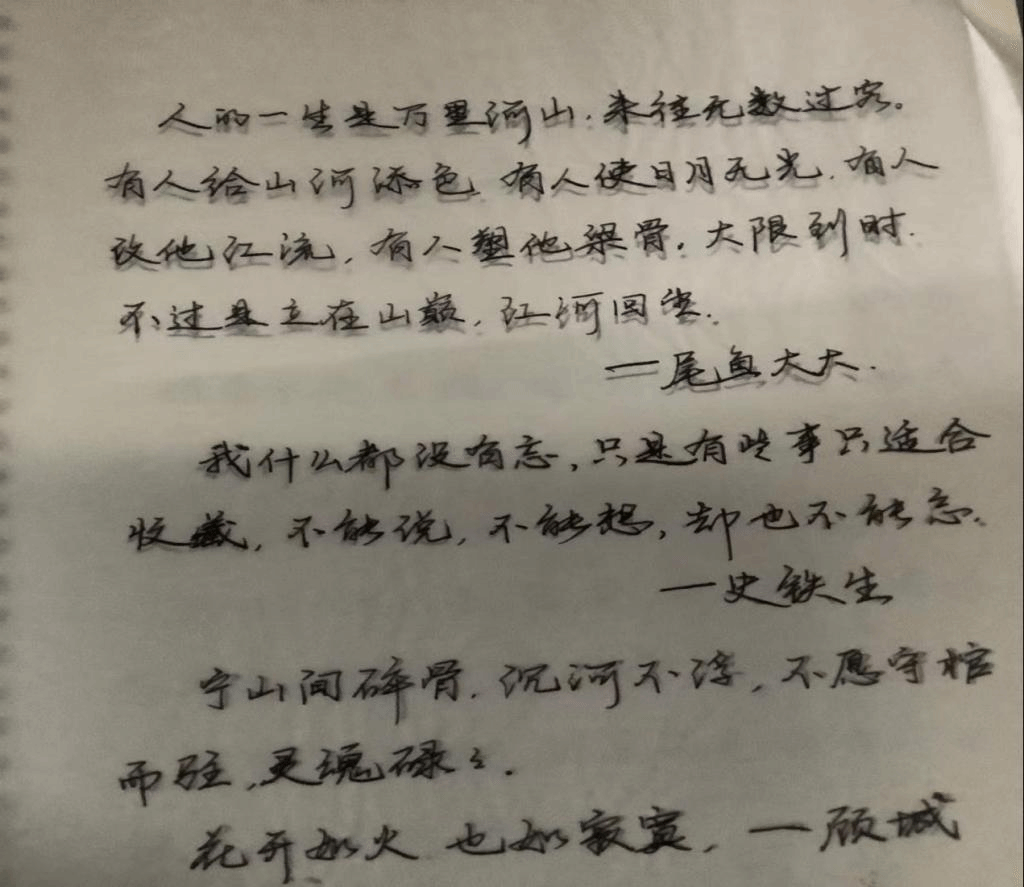 人的一生是万里河山，来往无数过客。
有人给山河添色，有人使日月无光，有人
改他江流，有人塑他梁骨。大限到时，
不过是立在山巅，江河回望。
——尾鱼大大.
我什么都没有忘，只是有些事只适合
收藏，不能说，不能想，却也不能忘。
——史铁生
宁山间碎骨，沉河不浮，不愿守棺
而驻，灵魂碌々。
花开如火 也如寂寞，——顾城